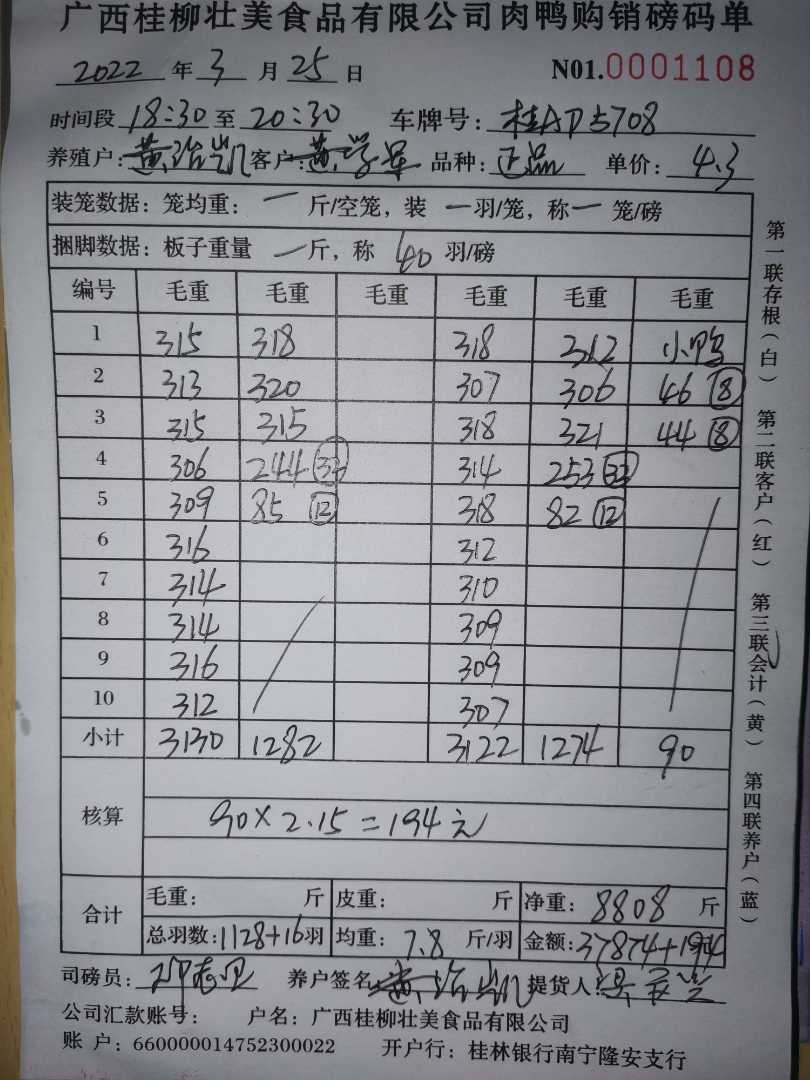 广西桂柳壮美食品有限公司肉鸭购销磅码单
2022 年 3 月 25 日 N01.0001108
时间段 18:30 至 20:30 车牌号: 桂AD5708
养殖户: 黄治凯 客户: 黄学军 品种: 正品 单价: 4.3
装笼数据: 笼均重: 一 斤/空笼, 装 一 羽/笼, 称 一 笼/磅
捆脚数据: 板子重量 一 斤, 称 40 羽/磅
编号 毛重 毛重 毛重 毛重 毛重 毛重
1 315 318 318 312 小鸭
2 313 320 307 306 46 (8)
3 315 315 318 321 44 (8)
4 306 244 (32) 314 253 (32)
5 309 85 (12) 318 82 (12)
6 316 312
7 314 310
8 314 309
9 316 309
10 312 307
小计 3130 1282 3122 1274 90
核算 90×2.15=194元
合计 毛重: 斤 皮重: 斤 净重: 8808 斤
总羽数: 1128+16 羽 均重: 7.8 斤/羽 金额: 37874+194
司磅员: 养户签名: 黄治凯 提货人:
公司汇款账号: 户名: 广西桂柳壮美食品有限公司
账 户: 660000014752300022 开户行: 桂林银行南宁隆安支行
第一联存根(白) 第二联客户(红) 第三联会计(黄) 第四联养户(蓝)